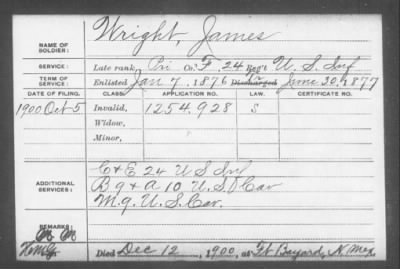 NAME OF SOLDIER: Wright, James
SERVICE: Late rank, Pri Co. F, 24 Reg't U. S. Inf
TERM OF SERVICE: Enlisted Jan 7, 1876 Discharged To June 30, 1877
DATE OF FILING. CLASS. APPLICATION NO. LAW. CERTIFICATE NO.
1900 Oct 5 Invalid, 1254.928 S
Widow,
Minor,
C & E 24 U S Inf
ADDITIONAL SERVICES: B 9 & A 10 U.S. Cav
M. 9. U. S. Cav.
REMARKS:
Died Dec 12, 1900, at Ft Bayard, N Mex